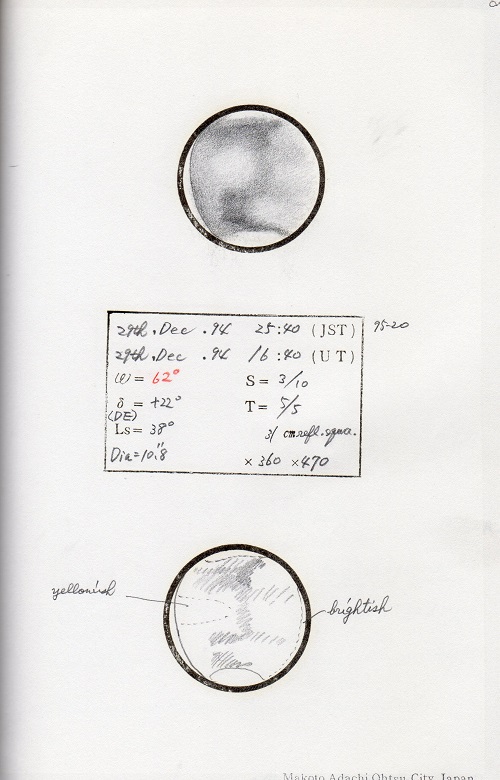 29th, Dec .94 25:40 (JST) 95-20
29th, Dec .94 16:40 (UT)
(ℓ) = 62° S = 3/10
δ = +22° T = 5/5
(DE)
Ls = 38° 31 cm refl.
Dia = 10".8 ×360 ×470
yellowish
brightish
Makoto Adachi Ohtsu City, Japan